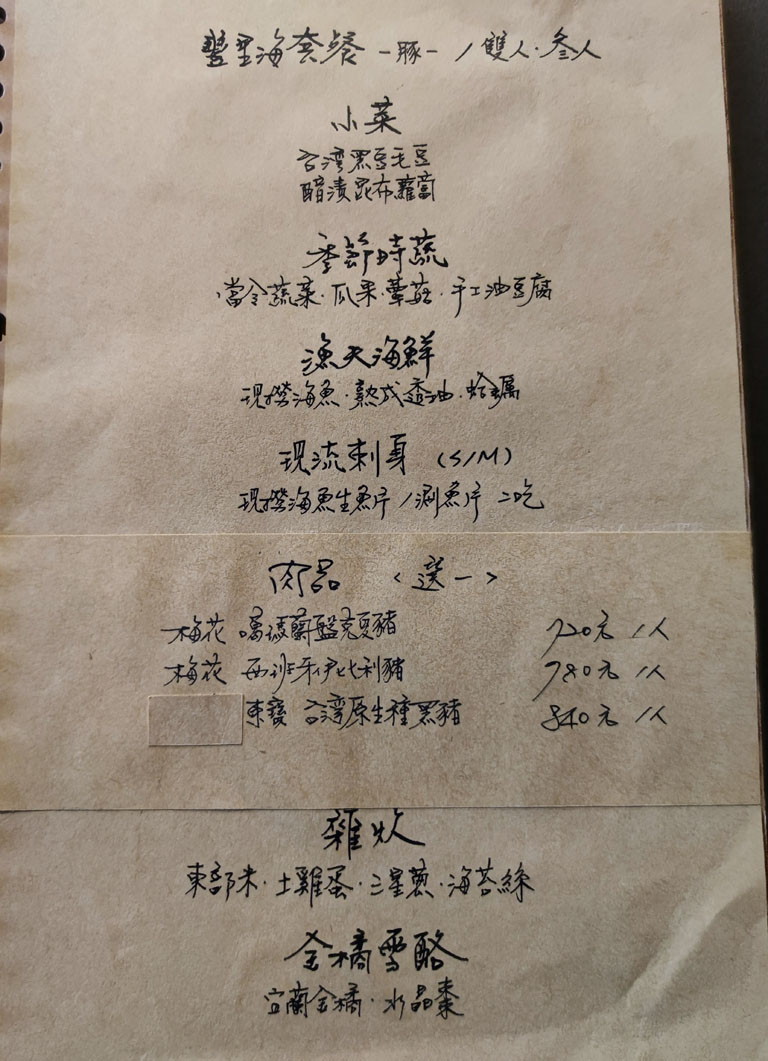 豐里海套餐 -豚- / 雙人·叁人
小菜
台灣黑豆毛豆
醋漬昆布蘿蔔
季節時蔬
當令蔬菜·瓜果·蕈菇·手工油豆腐
漁夫海鮮
現撈海魚·熟成透油·蛤蠣
現流刺身 (S/M)
現撈海魚生魚片/涮魚片 二吃
肉品 <選一>
梅花 噶瑪蘭盤克夏豬 720元/人
梅花 西班牙伊比利豬 780元/人
東寶 台灣原生種黑豬 840元/人
雜炊
東部米·土雞蛋·三星蔥·海苔絲
金橘雪酪
宜蘭金橘·水晶棗